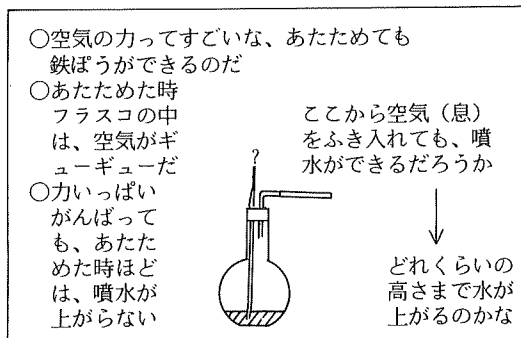 ○空気の力ってすごいな、あたためても
鉄ぽうができるのだ
○あたためた時
フラスコの中
は、空気がギ
ューギューだ
○力いっぱい
がんばって
も、あたた
めた時ほど
は、噴水が
上がらない
?
ここから空気（息）
をふき入れても、噴
水ができるだろうか
どれくらいの
高さまで水が
上がるのかな